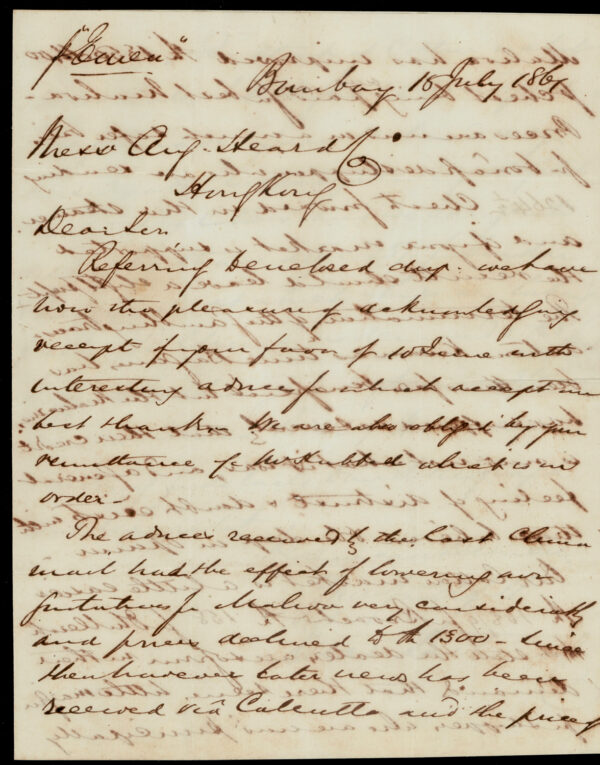 p "Emeu"
Bombay 15 July 1864
Messrs Aug. Heard & Co.
Hongkong
Dear Sirs
Referring to enclosed dup. we have
now the pleasure of acknowledging
receipt of your favor of 10 June with
interesting advices for which accept our
best thanks. We are also obliged by your
remittance of which is in
order.
The advices received by the last China
mail had the effect of lowering our
quotations for Malwa very considerably
and prices declined to 1300 - since
then however later news has been
received viâ Calcutta and the price of